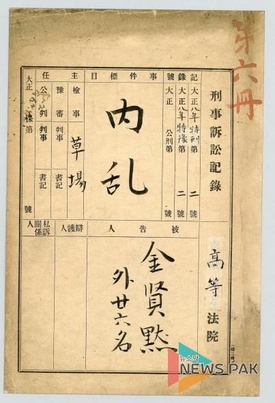 第六冊
刑事訴訟記錄
高等法院
記 大正八年特刑第二號
錄 大正八年特豫第二號
號 大正 公刑第
事件標目
内乱
被告人
金賢黙
外廿六名
主任
檢事 草場
豫審判事 書記
公判判事 書記
辯護人
私訴關係人
NEWS PAK